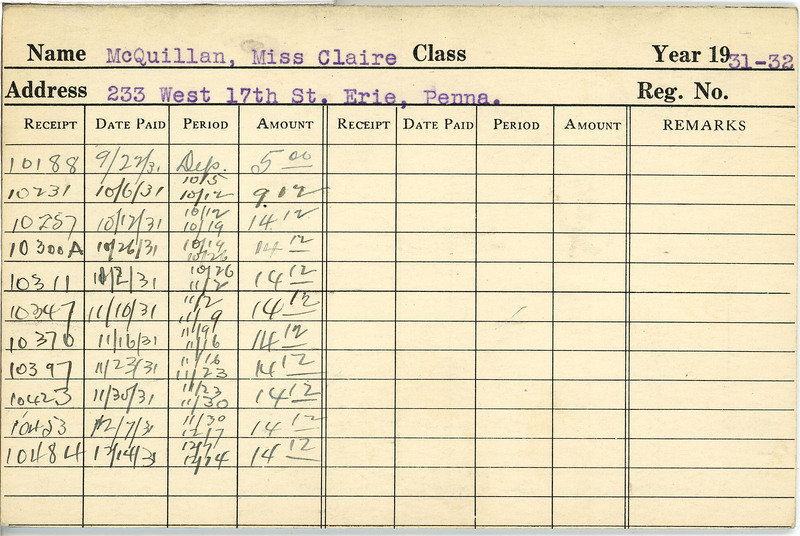 Name McQuillan, Miss Claire Class Year 1931-32
Address 233 West 17th St. Erie, Penna. Reg. No.
RECEIPT DATE PAID PERIOD AMOUNT RECEIPT DATE PAID PERIOD AMOUNT REMARKS
10188 9/22/31 Dep. 5 00
10231 10/6/31 10/5 10/12 9.12
10257 10/12/31 10/12 10/19 14.12
10300A 10/26/31 10/19 10/26 14 12
10311 11/2/31 10/26 11/2 14 12
10347 11/10/31 11/2 11/9 14 12
10370 11/16/31 11/9 11/16 14 12
10397 11/23/31 11/16 11/23 14 12
10423 11/30/31 11/23 11/30 14 12
10453 12/7/31 11/30 12/7 14 12
10484 12/14/31 12/7 12/14 14 12